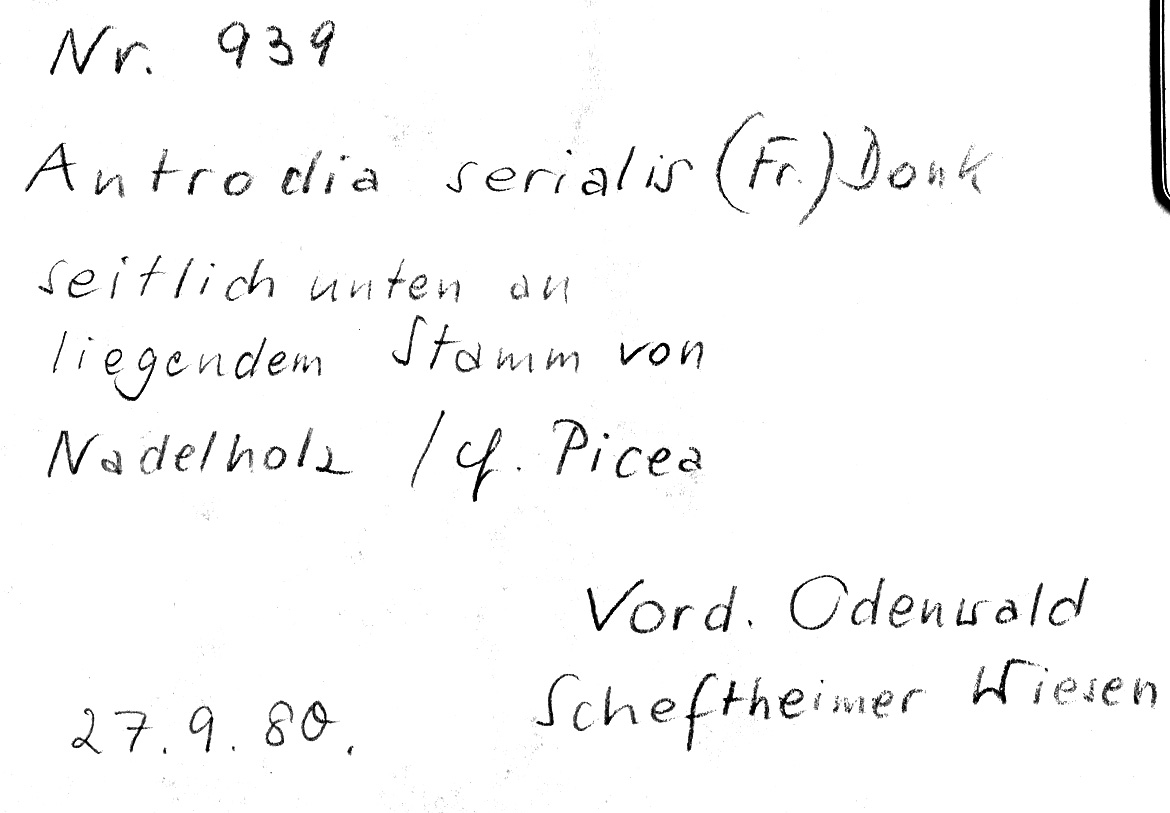 Nr. 939
Antrodia serialis (Fr.) Donk
seitlich unten an
liegendem Stamm von
Nadelholz / cf. Picea
Vord. Odenwald
Scheftheimer Wiesen
27.9.80.